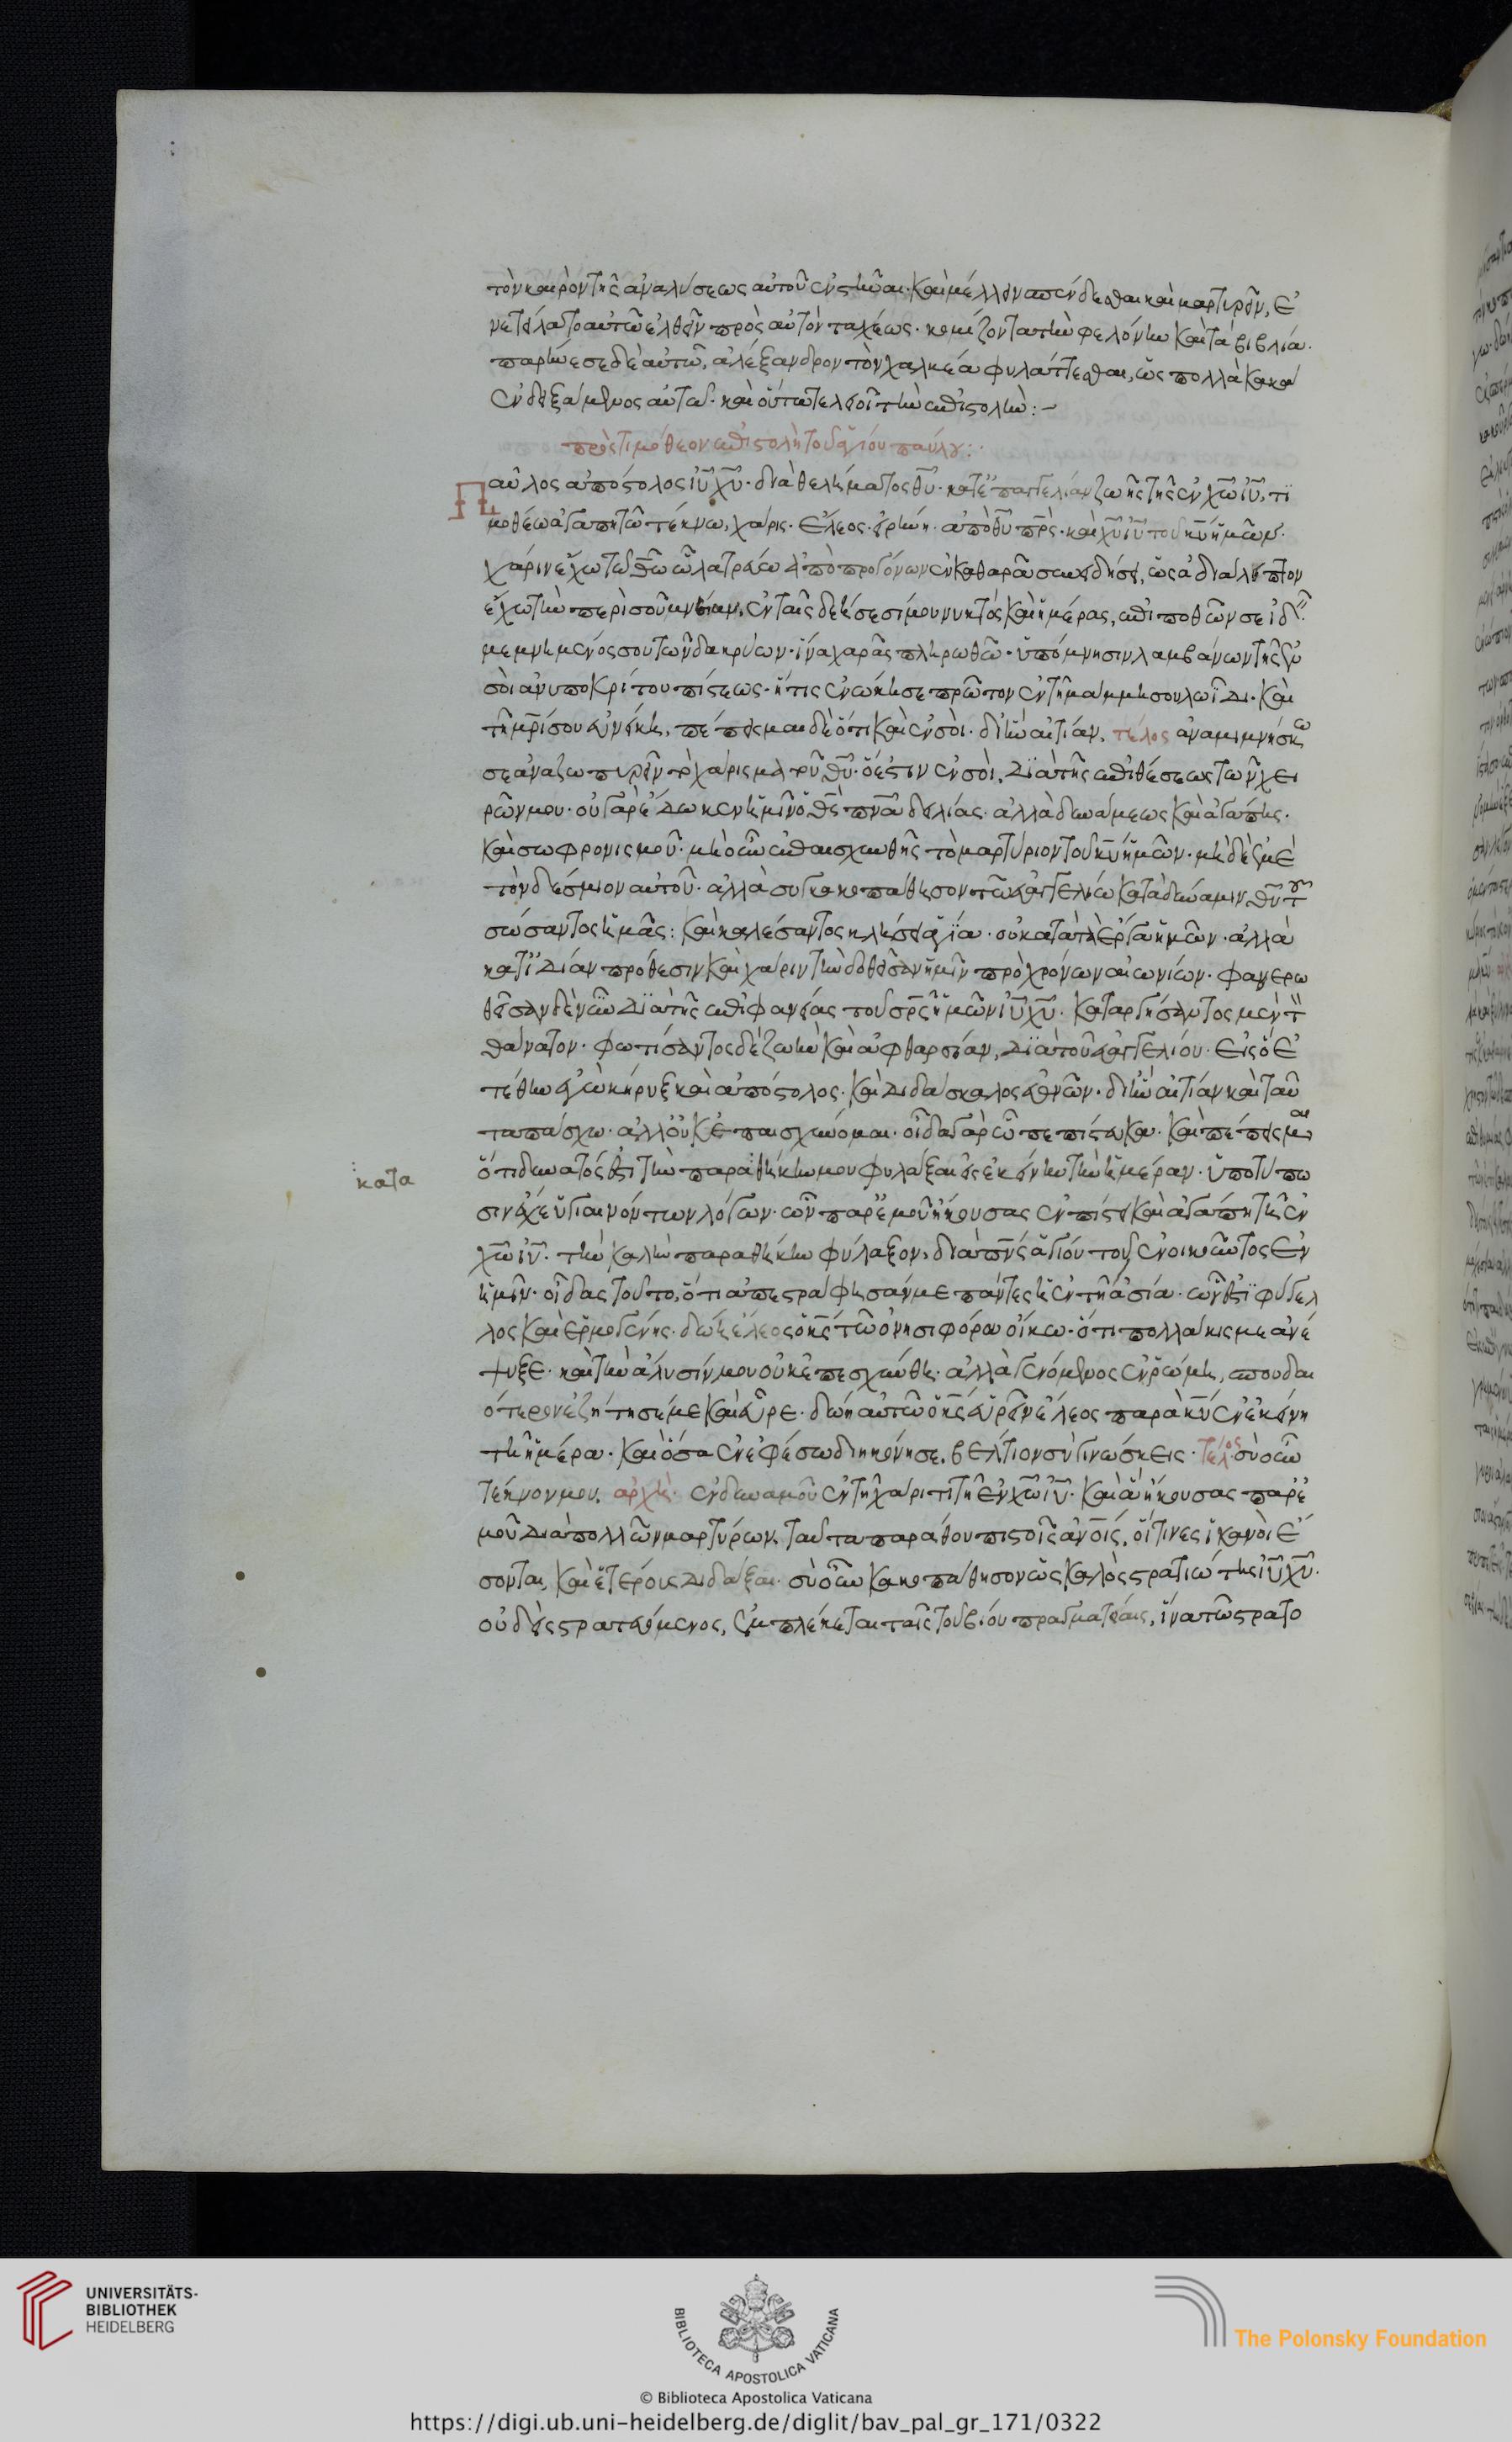 τὸν καιρὸν τῆς ἀναλύσεως αὐτοῦ ἐνστῆναι. καὶ μέλλειν σπένδεσθαι καὶ μαρτυρεῖν, ἐ
νετείλατο αὐτῶ ἐλθεῖν πρὸς αὐτὸν ταχέως. κομίζοντα τὴν φελόνην καὶ τὰ βιβλία.
παρήνεσε δὲ αὐτῶ, ἀλέξανδρον τὸν χαλκέα φυλάττεσθαι, ὡς πολλὰ κακὰ
ἐνδειξάμενος αὐτῶ. καὶ οὕτω τελειοῖ τὴν ἐπιστολήν :-
πρὸς τιμόθεον ἐπιστολὴ τοῦ ἁγίου παύλου :·
Παῦλος ἀπόστολος ἰυ χυ. διὰ θελήματος θυ. κατ' ἐπαγγελίαν ζωῆς τῆς ἐν χω ιυ, τι
μοθέω ἀγαπητῶ τέκνω, χάρις. ἔλεος. εἰρήνη. ἀπὸ θυ πρς. καὶ χυ ιυ τοῦ κυ ἡμῶν.
χάριν ἔχω τῶ θω ὧ λατρεύω ἀπὸ προγόνων ἐν καθαρᾶ συνειδήσει, ὡς ἀδιάλειπτον
ἔχω τὴν περὶ σοῦ μνείαν, ἐν ταῖς δεήσεσί μου νυκτὸς καὶ ἡμέρας, ἐπιποθῶν σε ἰδεῖν.
μεμνημένός σου τῶν δακρύων. ἵνα χαρᾶς πληρωθῶ. ὑπόμνησιν λαμβάνων τῆς ἐν
σοὶ ἀνυποκρίτου πίστεως. ἥτις ἐνώκησε πρῶτον ἐν τῆ μάμμη σου λωΐδι. καὶ
τῆ μρί σου εὐνείκη, πέπεισμαι δὲ ὅτι καὶ ἐν σοὶ. δι' ἣν αἰτίαν, τέλος ἀναμιμνήσκω
σε ἀναζωπυρεῖν τὸ χάρισμα τοῦ θυ. ὅ ἐστιν ἐν σοὶ, διὰ τῆς ἐπιθέσεως τῶν χει
ρῶν μου. οὐ γὰρ ἔδωκεν ἡμῖν ὁ θς πνα δειλίας. ἀλλὰ δυνάμεως καὶ ἀγάπης.
καὶ σωφρονισμοῦ. μὴ οὖν ἐπαισχυνθῆς τὸ μαρτύριον τοῦ κυ ἡμῶν. μὴ δὲ ἐμὲ
τὸν δέσμιον αὐτοῦ. ἀλλὰ συγκακοπάθησον τῶ εὐαγγελίω κατὰ δύναμιν θυ τοῦ
σώσαντος ἡμᾶς: καὶ καλέσαντος κλήσει ἁγία. οὐ κατὰ τὰ ἔργα ἡμῶν. ἀλλὰ
κατ' ἰδίαν πρόθεσιν καὶ χάριν τὴν δοθεῖσαν ἡμῖν πρὸ χρόνων αἰωνίων. φανερω
θεῖσαν δὲ νῦν διὰ τῆς ἐπιφανείας τοῦ σρς ἡμῶν ιυ χυ. καταργήσαντος μὲν τὸν
θάνατον. φωτίσαντος δὲ ζωὴν καὶ ἀφθαρσίαν, διὰ τοῦ εὐαγγελίου. εἰς ὃ ἐ
τέθην ἐγὼ κήρυξ καὶ ἀπόστολος. καὶ διδάσκαλος ἐθνῶν. δι' ἣν αἰτίαν καὶ ταῦ
τα πάσχω. ἀλλ' οὐκ ἐπαισχύνομαι. οἶδα γὰρ ὧ πεπίστευκα. καὶ πέπεισμαι
ὅτι δυνατός ἐστι τὴν παραθήκην μου φυλάξαι εἰς ἐκείνην τὴν ἡμέραν. ὑποτύπω
κατα
σιν ἔχε ὑγιαινόντων λόγων. ὧν παρ' ἐμοῦ ἤκουσας ἐν πίστει καὶ ἀγάπη τῆ ἐν
χω ιυ. τὴν καλὴν παραθήκην φύλαξον, διὰ πνς ἁγίου τοῦ ἐνοικοῦντος ἐν
ἡμῖν. οἶδας τοῦτο, ὅτι ἀπεστράφησάν με πάντες οἱ ἐν τῆ ἀσία. ὧν ἐστι φύγελ
λος καὶ ἑρμογένης. δώη ἔλεος ὁ κς τῶ ὀνησιφόρου οἴκω. ὅτι πολλάκις με ἀνέ
ψυξε. καὶ τὴν ἅλυσίν μου οὐκ ἐπεσχύνθη. ἀλλὰ γενόμενος ἐν ῥώμη, σπουδαι
ότερον ἐζήτησέ με καὶ εὗρε. δώη αὐτῶ ὁ κς εὑρεῖν ἔλεος παρὰ κυ ἐν ἐκείνη
τῆ ἡμέρα. καὶ ὅσα ἐν ἐφέσω διηκόνησε. βέλτιον σὺ γινώσκεις. τέλος σὺ οὖν
τέκνον μου, ἀρχὴ. ἐνδυναμοῦ ἐν τῆ χάριτι τῆ ἐν χω ιυ. καὶ ἃ ἤκουσας παρ' ἐ
μοῦ διὰ πολλῶν μαρτύρων, ταῦτα παράθου πιστοῖς ἀνοις, οἵτινες ἱκανοὶ ἔ
σονται, καὶ ἑτέρους διδάξαι. σὺ οὖν κακοπάθησον ὡς καλὸς στρατιώτης ιυ χυ.
οὐδεὶς στρατευόμενος, ἐμπλέκεται ταῖς τοῦ βίου πραγματείαις, ἵνα τῶ στρατο
UNIVERSITÄTS-
BIBLIOTHEK
HEIDELBERG
BIBLIOTECA APOSTOLICA VATICANA
The Polonsky Foundation
© Biblioteca Apostolica Vaticana
https://digi.ub.uni-heidelberg.de/diglit/bav_pal_gr_171/0322